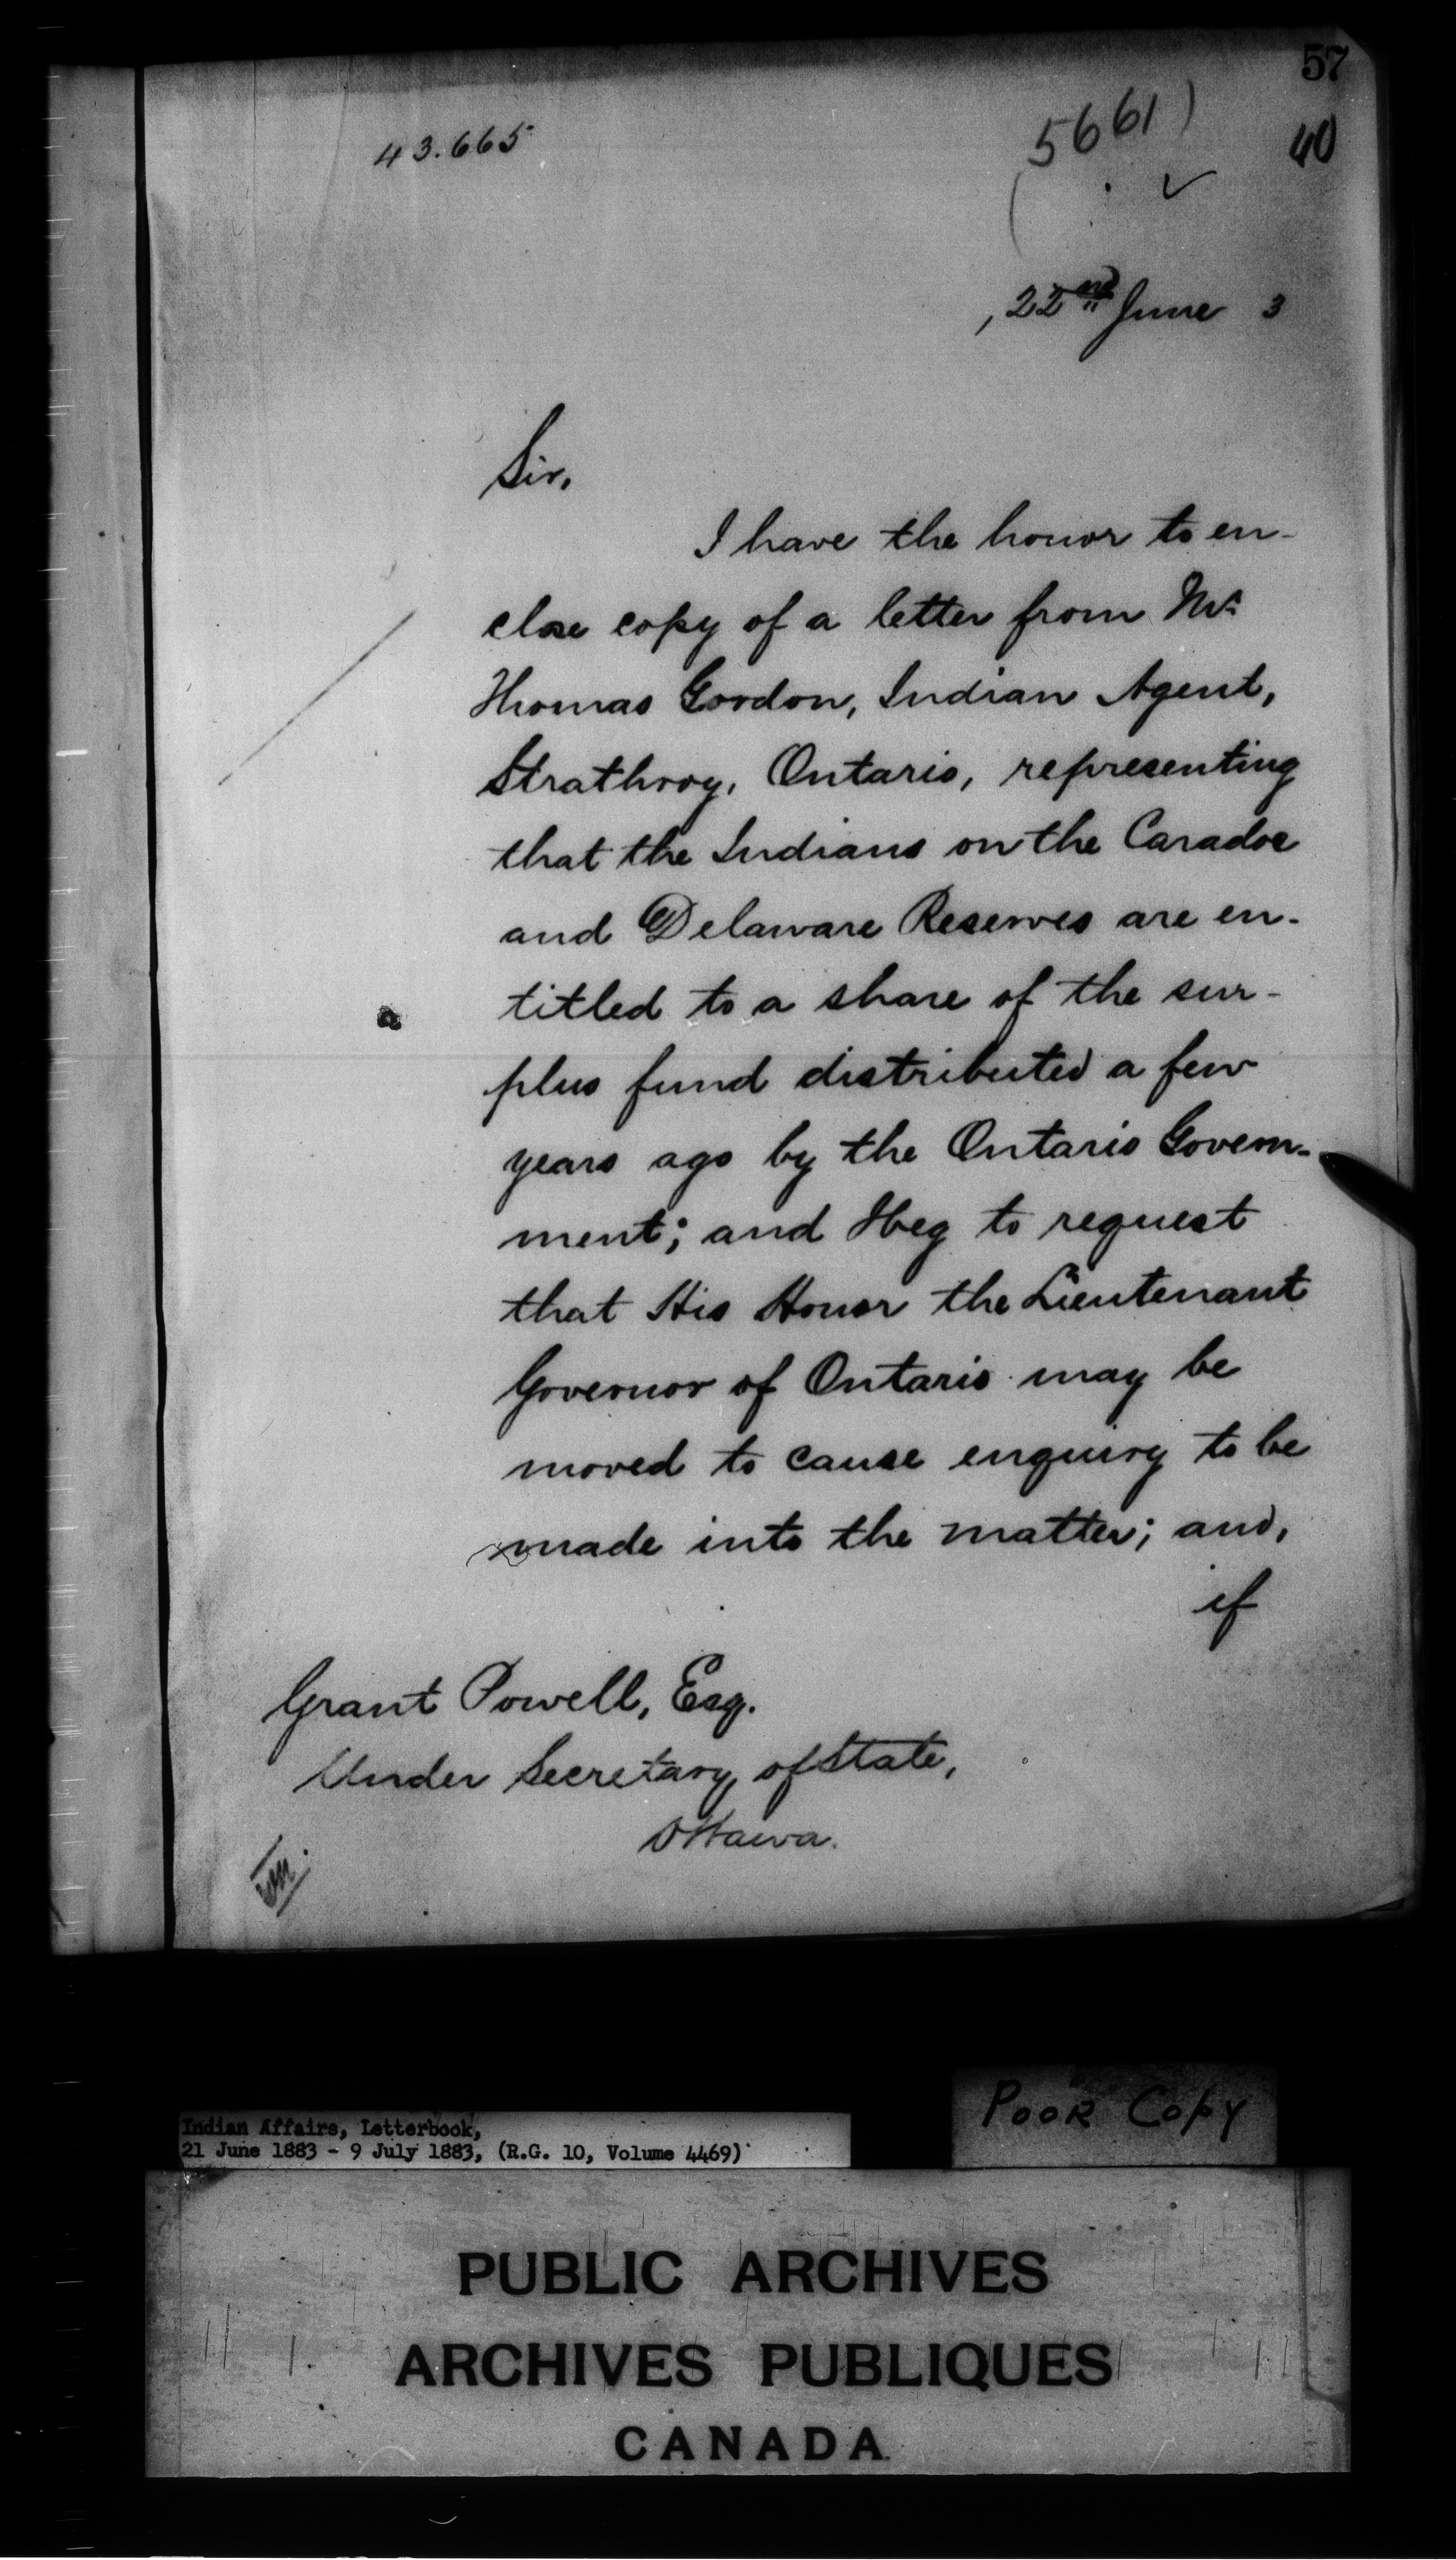 57
43.665
5661)
40
, 22nd June 3
Sir,
I have the honor to en-
close copy of a letter from Mr.
Thomas Gordon, Indian Agent,
Strathroy, Ontario, representing
that the Indians on the Caradoc
and Delaware Reserves are en-
titled to a share of the sur-
plus fund distributed a few
years ago by the Ontario Govern-
ment; and I beg to request
that His Honor the Lieutenant
Governor of Ontario may be
moved to cause enquiry to be
made into the matter; and,
if
Grant Powell, Esq.
Under Secretary of State,
Ottawa.
Poor Copy
Indian Affairs, Letterbook,
21 June 1883 - 9 July 1883, (R.G. 10, Volume 4469)
PUBLIC ARCHIVES
ARCHIVES PUBLIQUES
CANADA